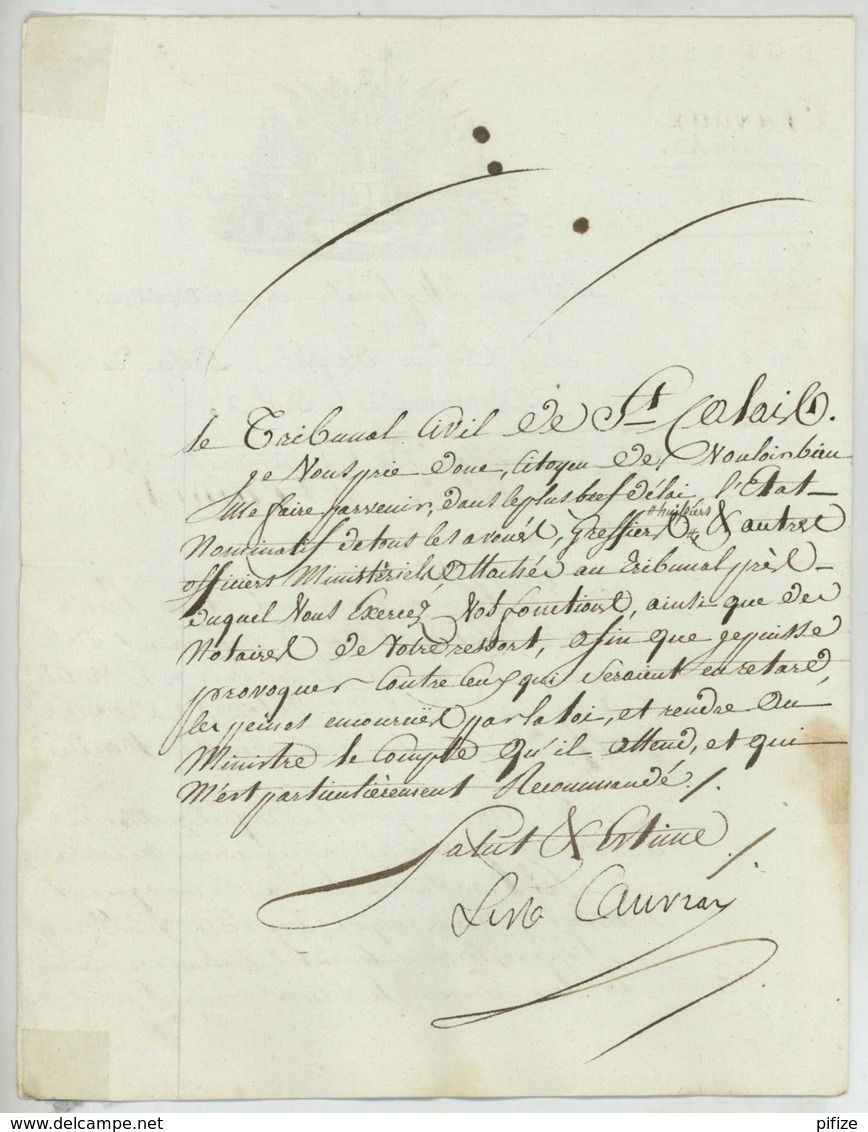 le Tribunal Civil de St Calais.
je Vous prie donc, Citoyen de Vouloir bien
Me faire parvenir, dans le plus bref délai, l'Etat
Nominatif de tous les avoués, Greffiers, huissiers & autres
officiers Ministériels, attachés au tribunal près
duquel Vous Exercez Vos fonctions, ainsi que des
Notaires de Votre ressort, afin que je puisse
provoquer contre Ceux qui seraient en retard,
les peines encourues par la loi, et rendre au
Ministre le Compte qu'il attend, et qui
M'est particulièrement Recommandé./.
Salut & Estime./
Auvray
pifize